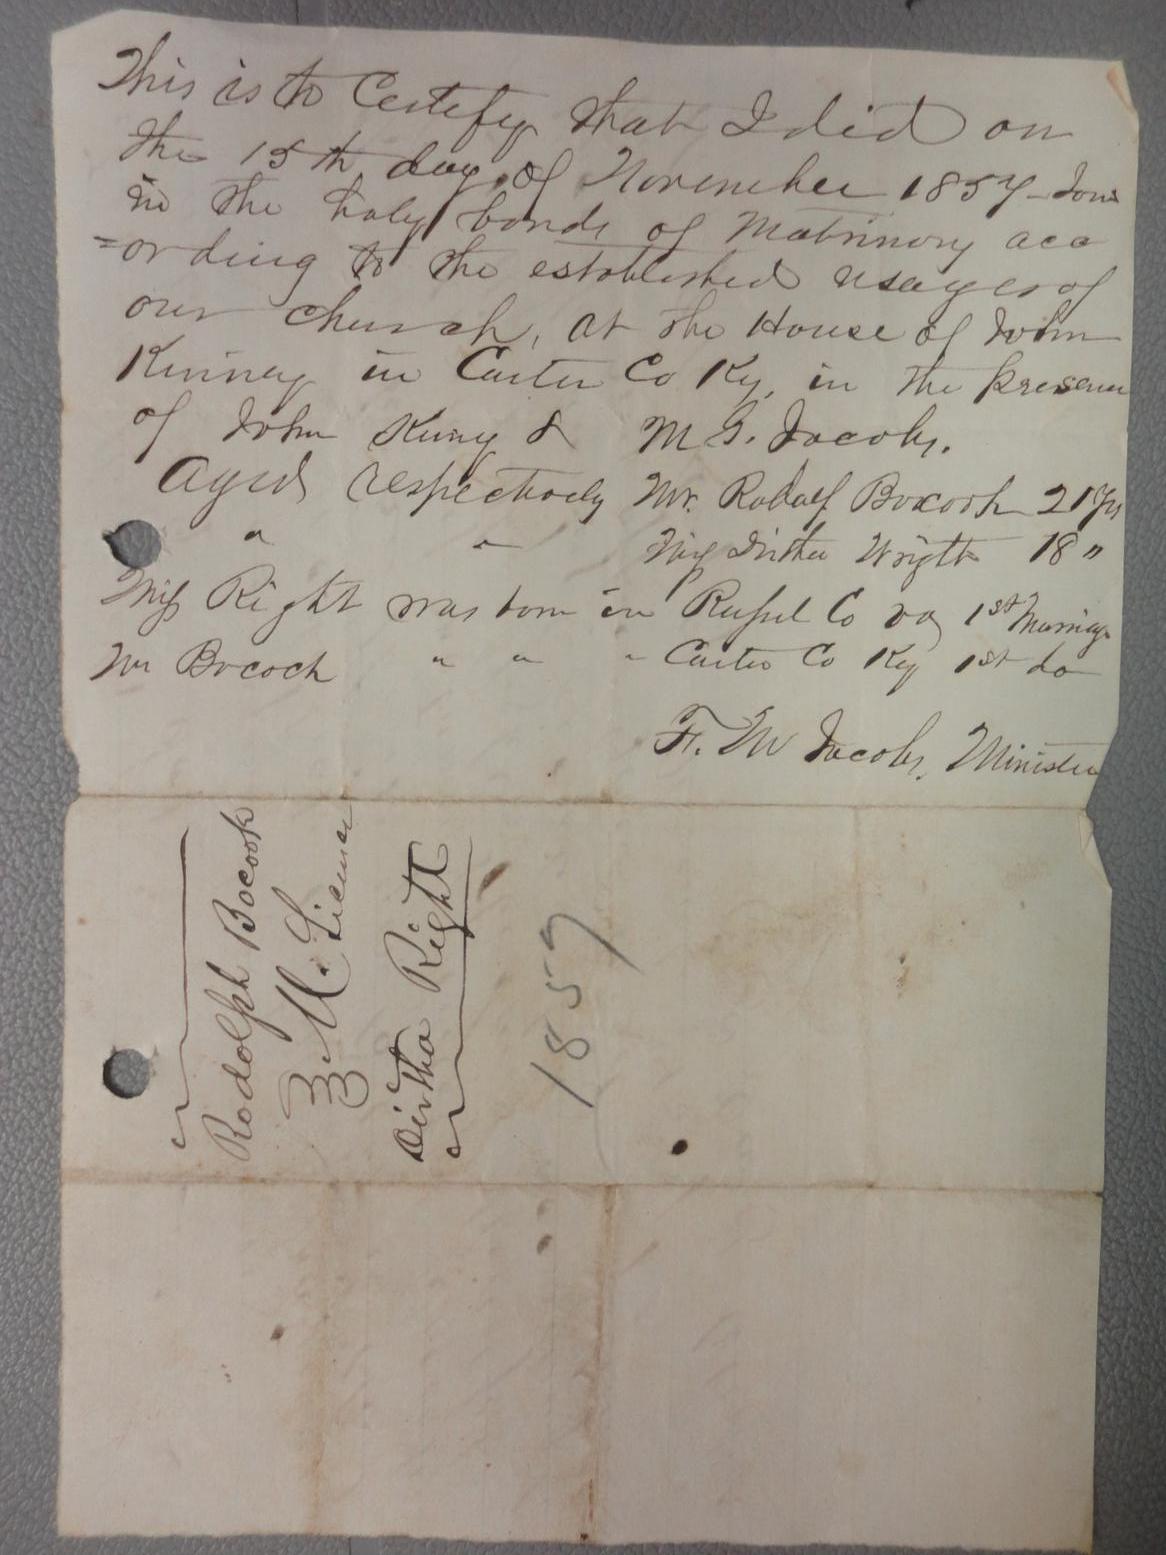 This is to Certify that I did on
the 15th day of November 1857 Join
in the holy bonds of Matrimony acc
=ording to the established usages of
our church, at the House of John
Kinney in Carter Co Ky, in the presence
of John Kiney & M G. Jacobs.
Aged respectively Mr. Rodolf Bocook 21 Yrs
" " Miss Dirtha Wright 18 "
Miss Right was born in Russel Co va 1st Marriage
Mr Bocock " " " Carter Co Ky 1st do
F. M Jacobs, Minister
Rodolph Bocook
M. License
Dirtha Right
1857